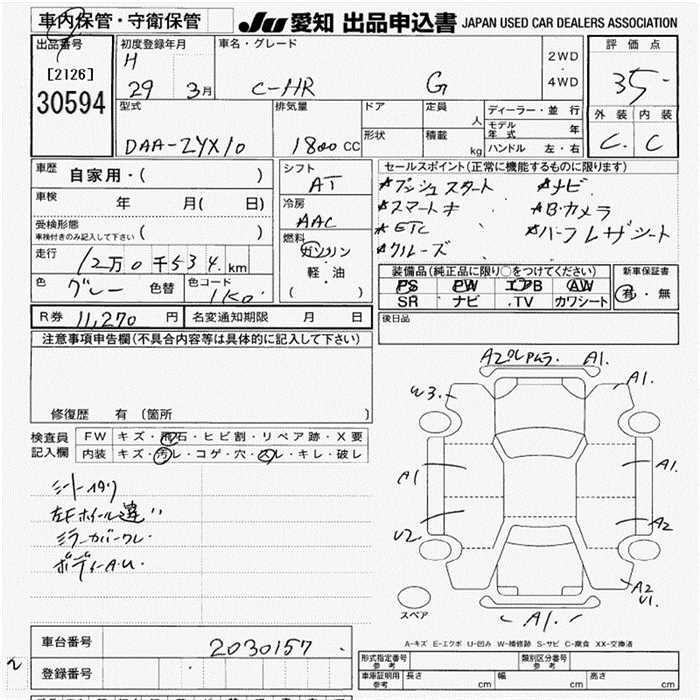 車内保管・守衛保管
JU 愛知 出品申込書 JAPAN USED CAR DEALERS ASSOCIATION
出品番号
[2126]
30594
初度登録年月
H
29 3月
車名・グレード
C-HR G
2WD
・
4WD
評価点
3.5
外装 内装
C C
型式
DAA-ZYX10
排気量
1800 CC
ドア
形状
定員
人
積載
kg
ディーラー・並行
モデル年式 年
ハンドル 左・右
車歴
自家用・( )
車検
年 月( 日)
受検形態
車検付きのみ記入して下さい ( )
走行
12万0千534km
色 グレー 色替
色コード 1K0
シフト
AT
冷房
AAC
燃料
ガソリン
軽・油
( )
セールスポイント(正常に機能するものに限ります)
★プッシュスタート ★ナビ
★スマートキ ★B・カメラ
★ETC ★ハーフレザシート
★クルーズ
装備品(純正品に限り○をつけてください)
PS PW エアB AW
SR ナビ TV カワシート
新車保証書
有・無
R券 11,270 円
名変通知期限 月 日
後日品
注意事項申告欄(不具合内容等は具体的に記入して下さい)
修復歴 有 〔箇所 〕
検査員
記入欄
FW キズ・飛石・ヒビ割・リペア跡・X要
内装 キズ・汚レ・コゲ・穴・スレ・キレ・破レ
シートイタリ
左Fホイール違い
ミラーカバーワレ
ボディーA.U.
A2 A1.
W3. A1.
A1 A1
U2. A2
A2
U1.
A1.
スペア
A-キズ E-エクボ U-凹み W-補修跡 S-サビ C-腐食 XX-交換済
車台番号 2030157
登録番号
形式指定番号
参考
類別区分番号
参考
車庫証明用
参考
長さ cm 幅 cm 高さ cm